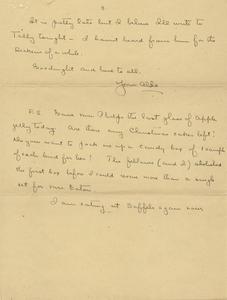 8
It is pretty late but I believe I'll write to
Tabby tonight - I haven't heard from him for the
of a while.
Goodnight and love to all.
Your Aldo
P.S. Gave Mrs. Phelps the last glass of Apple
jelly today. Are there any Christmas cakes left?
Do you want to pack me up a candy box of 1 sample
of each kind for her? The fellows (and I) abolished
the first box before I could save more than a single
set for Mrs. Eaton.
I am eating at again now